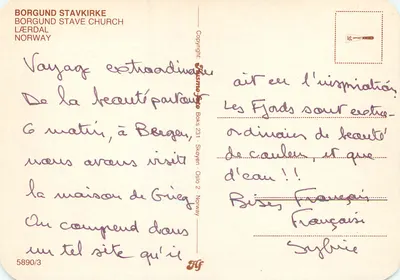 BORGUND STAVKIRKE
BORGUND STAVE CHURCH
LÆRDAL
NORWAY
Voyage extraordinaire
De la beauté partout
Ce matin, à Bergen,
nous avons visité
la maison de Grieg
On comprend dans
un tel site qu'il
5890/3
Copyright
Boks 231 - Skøyen - Oslo 2 - Norway
ait eu l'inspiration
Les Fjords sont extra-
ordinaires de beauté
de couleur, et que
d'eau !!
Bises François
Françoise
Sylvie